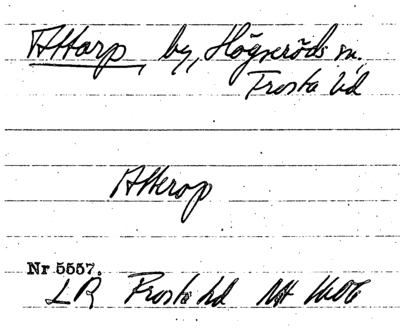 Attarp, by, Högseröds sn.
Frosta hd
Atterop
Nr 5557.
LR Frosta hd